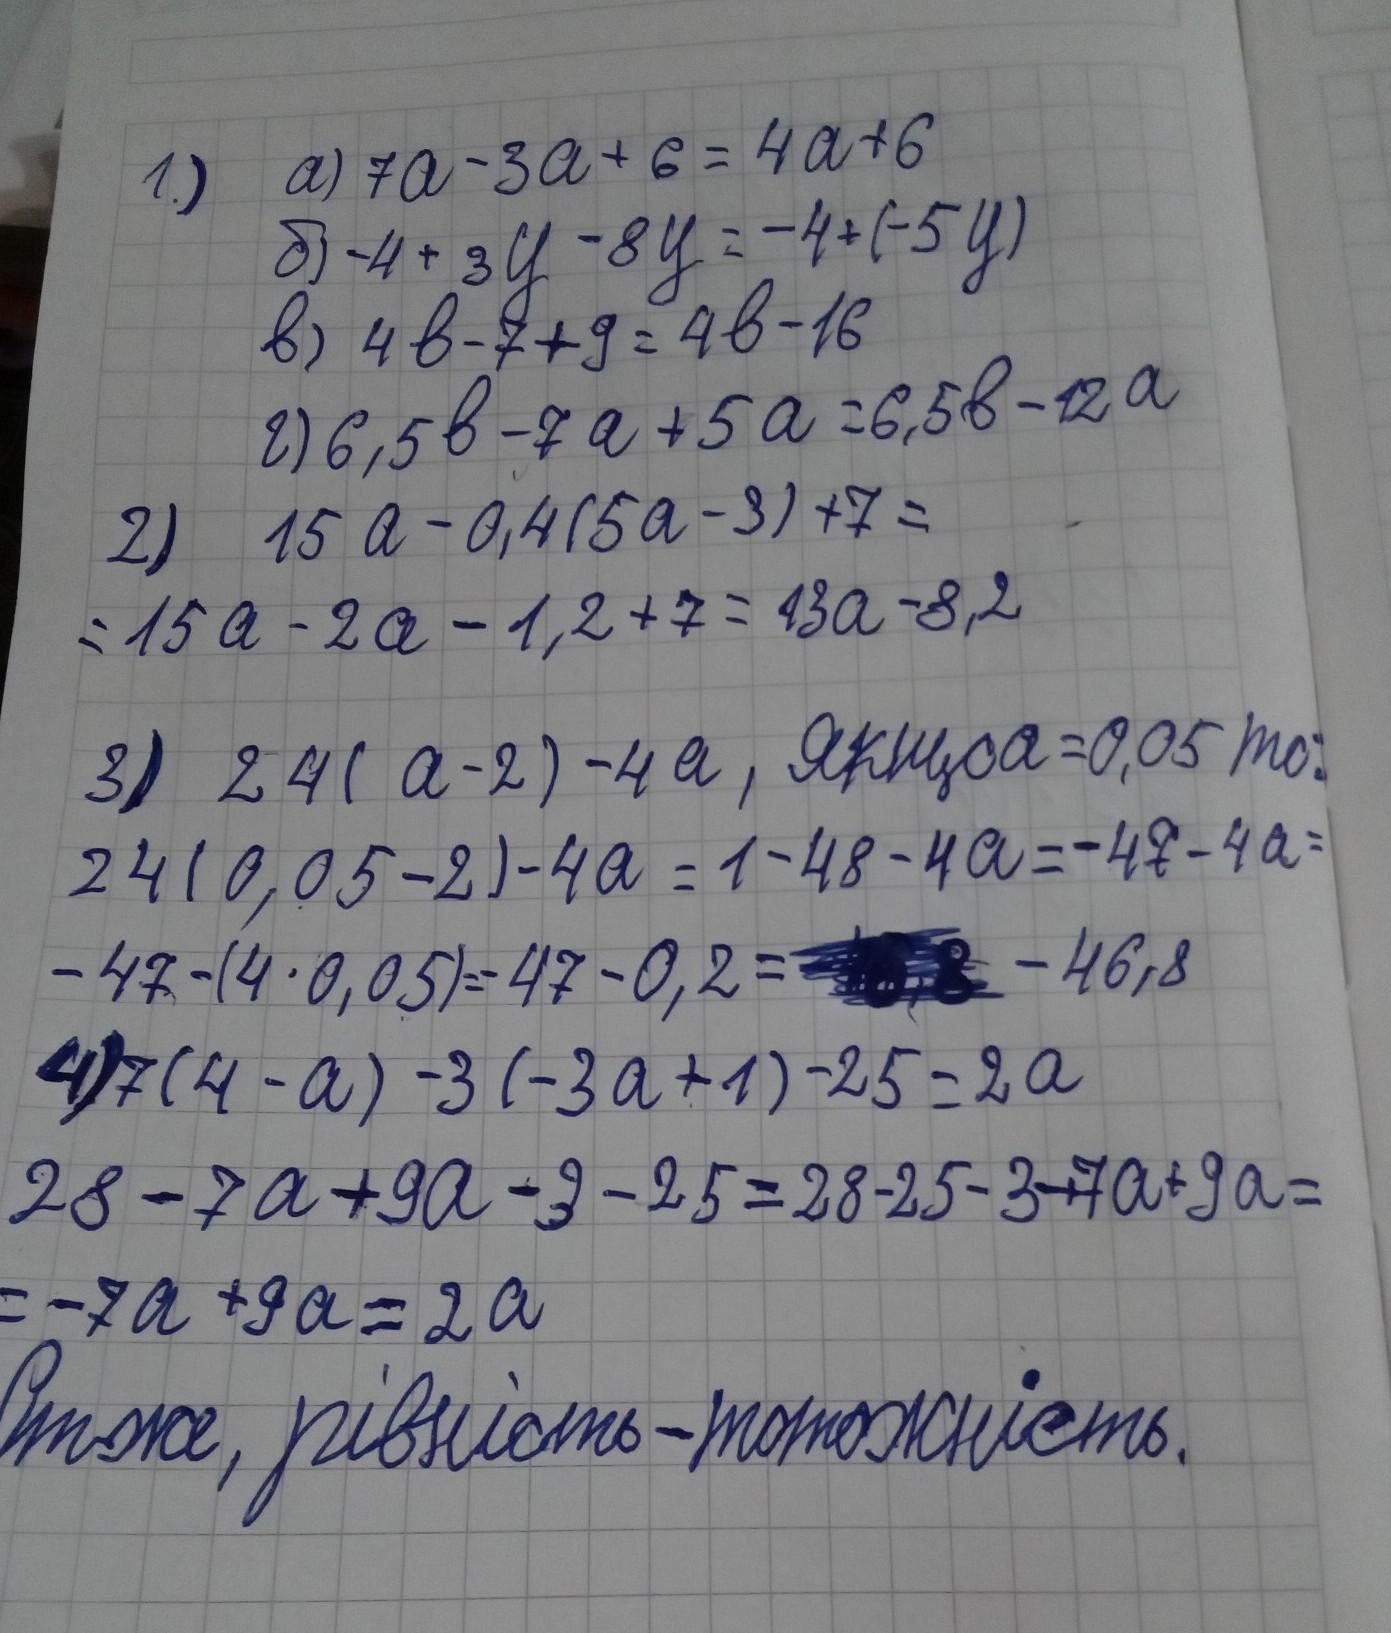 1.) а) 7a - 3a + 6 = 4a + 6
б) -4 + 3y - 8y = -4 + (-5y)
в) 4b - 7 + 9 = 4b - 16
г) 6,5b - 7a + 5a = 6,5b - 12a
2) 15a - 0,4(5a - 3) + 7 =
= 15a - 2a - 1,2 + 7 = 13a - 8,2
3) 24(a - 2) - 4a, Якщо a = 0,05 то:
24(0,05 - 2) - 4a = 1 - 48 - 4a = -47 - 4a =
-47 - (4 · 0,05) = -47 - 0,2 = -46,8
4) 7(4 - a) - 3(-3a + 1) - 25 = 2a
28 - 7a + 9a - 3 - 25 = 28 - 25 - 3 - 7a + 9a =
= -7a + 9a = 2a
Отже, рівність - тотожність.